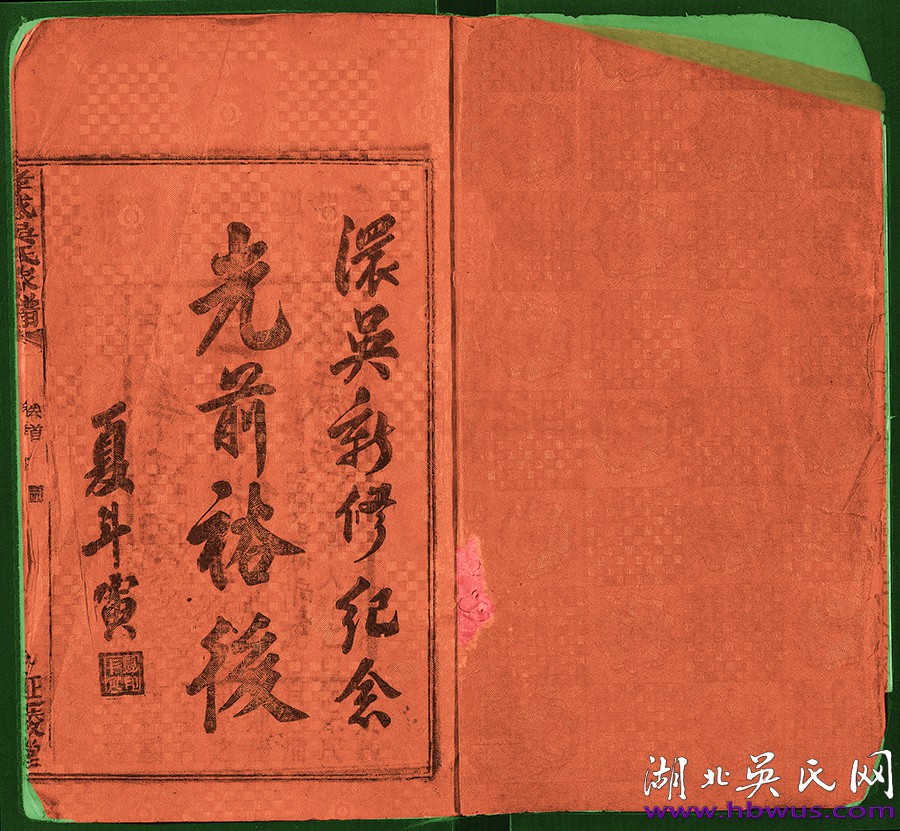 澴吳新修紀念
光前裕後
夏斗寅
吳氏家譜
湖北吴氏网
www.hbwus.com